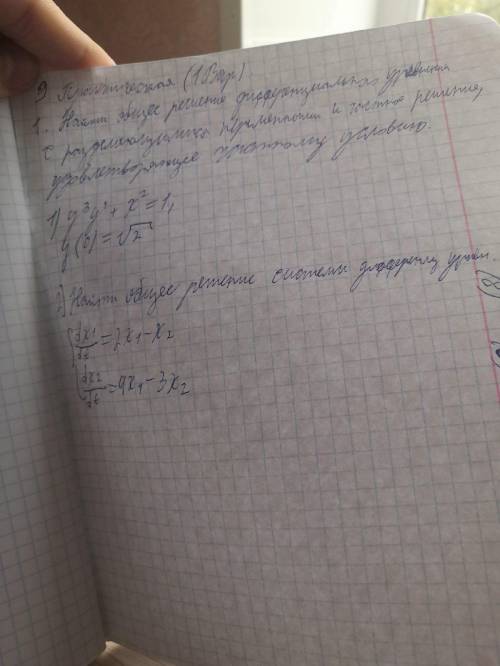 9 Практическая (1 Вар)
1. Найти общее решение дифференциального уравнения
с разделяющимися переменными и частное решение,
удовлетворяющее условию.
1) y³y' + x² = 1,
y(0) = √2
2) Найти общее решение системы дифференц уравн.
dx₁/dt = 2x₁ - x₂
dx₂/dt = 9x₁ - 3x₂